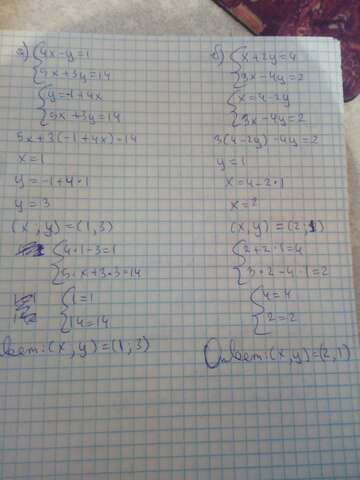 а) {4x-y=1
5x+3y=14
{y=-1+4x
5x+3y=14
5x+3(-1+4x)=14
x=1
y=-1+4·1
y=3
(x;y)=(1,3)
{4·1-3=1
5·x+3·3=14
{1=1
14=14
(x;y)=(1;3)
б) {x+2y=4
3x-4y=2
{x=4-2y
3x-4y=2
3(4-2y)-4y=2
y=1
x=4-2·1
x=2
(x,y)=(2;1)
{2+2·1=4
3·2-4·1=2
{4=4
2=2
Ответ:(x,y)=(2,1)